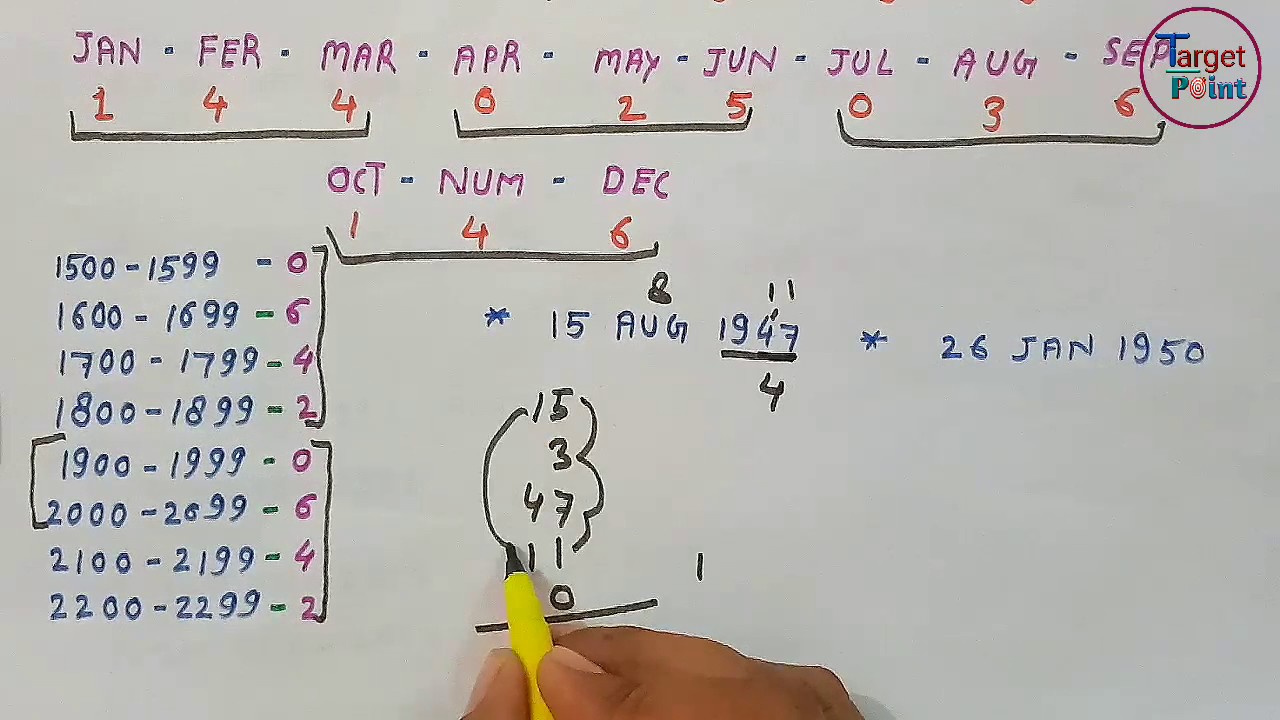 JAN - FER - MAR - APR - MAY - JUN - JUL - AUG - SEP
1 4 4 0 2 5 0 3 6
Target
Point
OCT - NUM - DEC
1 4 6
1500 - 1599 - 0
1600 - 1699 - 6
1700 - 1799 - 4
1800 - 1899 - 2
1900 - 1999 - 0
2000 - 2099 - 6
2100 - 2199 - 4
2200 - 2299 - 2
8 11
* 15 AUG 1947 * 26 JAN 1950
4
15
3
47
11
0
1